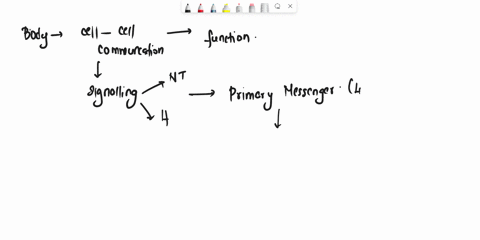 Body → cell - cell communication → function.
↓
Signalling → NT
→ H
→ Primary Messenger. (
↓